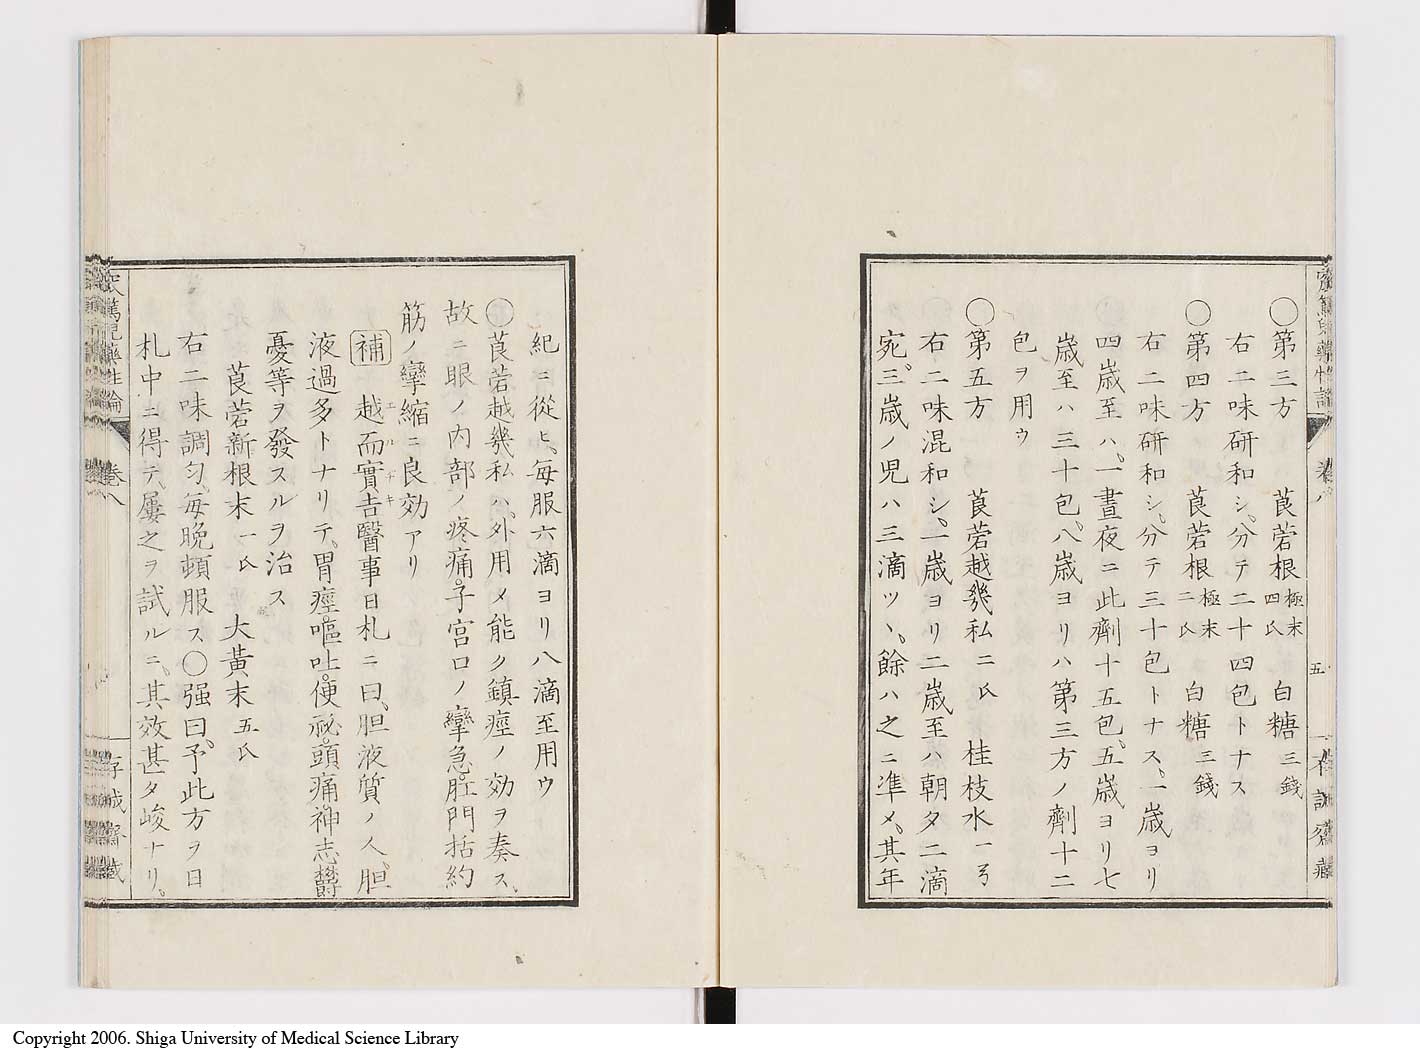 〇第三方　莨菪根 極末四氏 白糖 三錢
右二味研和シ、分テ二十四包トナス
〇第四方　莨菪根 極末二氏 白糖 三錢
右二味研和シ、分テ三十包トナス、一歳ヨリ
四歳至ハ、一晝夜ニ此劑十五包、五歳ヨリ七
歳至ハ三十包、八歳ヨリハ第三方ノ劑十二
包ヲ用ウ
〇第五方　莨菪越幾私 二氏 桂枝水 一弓
右二味混和シ、一歳ヨリ二歳至ハ朝夕二滴
宛、三歳ノ児ハ三滴ツヽ、餘ハ之ニ準メ、其年
五
紀ニ從ヒ、毎服六滴ヨリ八滴至用ウ
〇莨菪越幾私ハ、外用メ能ク鎮痙ノ効ヲ奏ス、
故ニ眼ノ内部ノ疼痛、子宮口ノ攣急、肛門括約
筋ノ攣縮ニ良効アリ
補 越而實吉醫事日札ニ曰、胆液質ノ人、胆
エルデキ
液過多トナリテ、胃痙嘔吐、便祕、頭痛、神志欝
憂等ヲ發スルヲ治ス
莨菪新根末 一氏 大黄末 五氏
右二味調匀、毎晩頓服ス〇强曰、予此方ヲ日
札中ニ得テ、屢之ヲ試ルニ、其效甚タ峻ナリ。
窊篤児藥性論
卷八
存誠齋藏
Copyright 2006. Shiga University of Medical Science Library